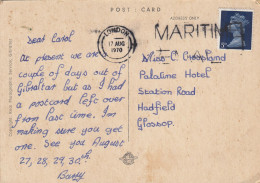 POST CARD
ADDRESS ONLY
LONDON
17 AUG
1970
MARITIM
Dear Carol
At present we are
couple of days out of
Gibraltar but as I had
a postcard left over
from last time. I'm
making sure you get
one. See you August
27, 28, 29, 30th
Barry
Miss C. Crossland
Palatine Hotel
Station Road
Hadfield
Glossop.